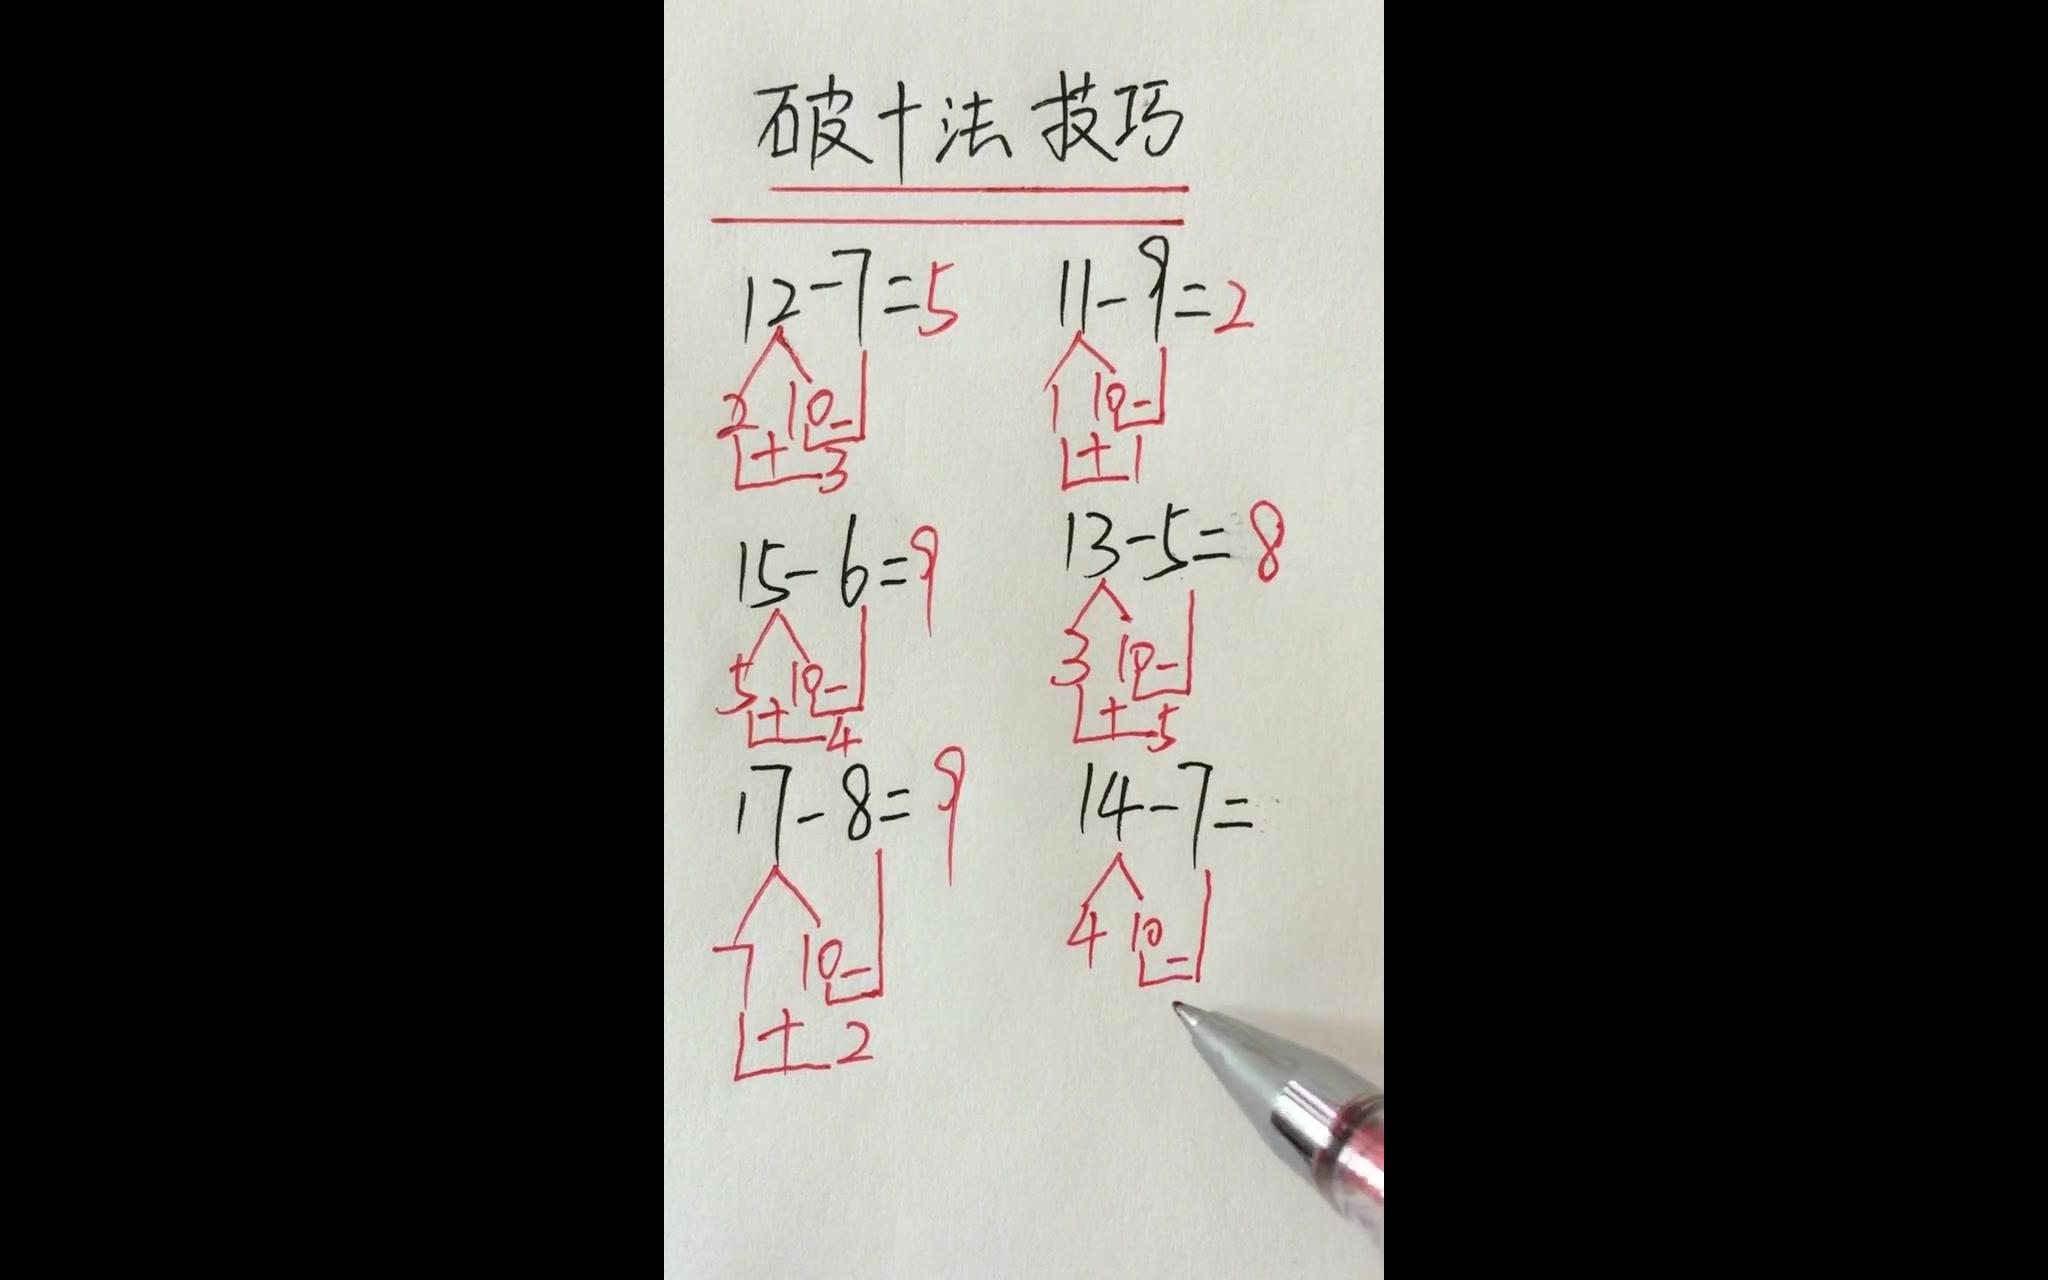 破十法技巧
12-7=5 11-9=2
2 10- 1 10-
+ 3 + 1
15-6=9 13-5=8
5 10- 3 10-
+ 4 + 5
17-8=9 14-7=
7 10- 4 10-
+ 2